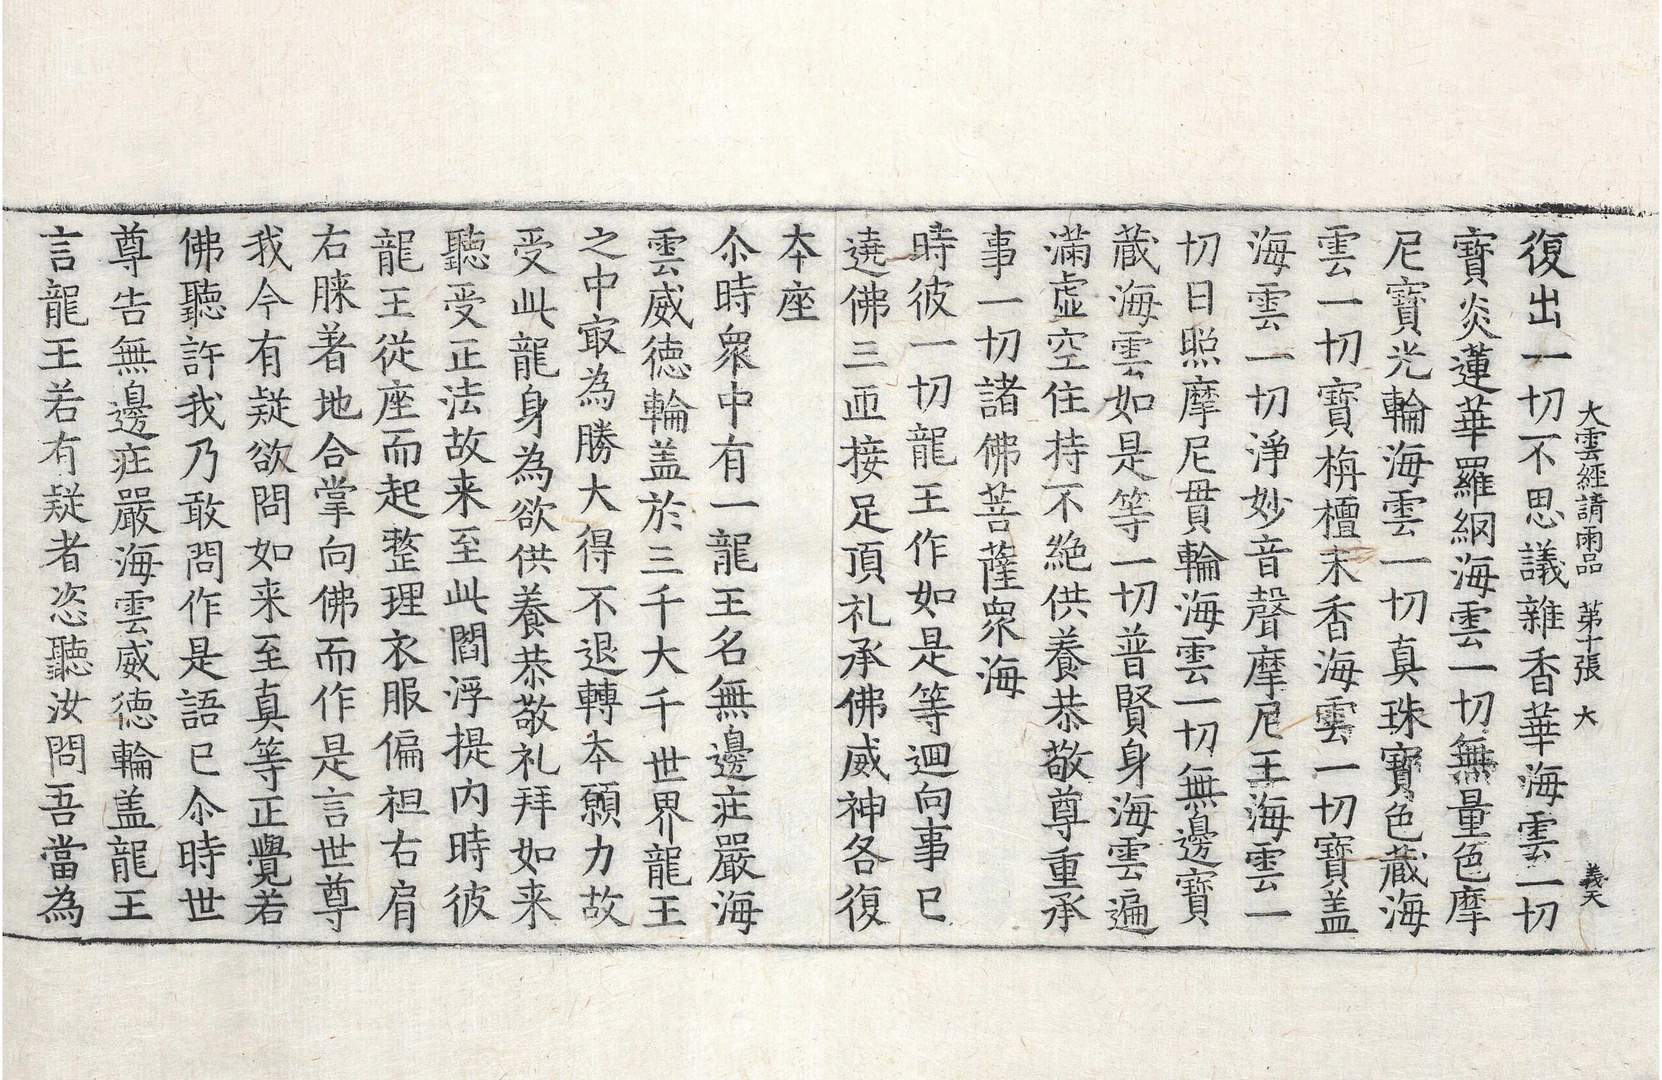 大雲經請雨品 第十張 大 義天
復出一切不思議雜香華海雲一切
寶炎蓮華羅網海雲一切無量色摩
尼寶光輪海雲一切真珠寶色蔵海
雲一切寶栴檀末香海雲一切寶盖
海雲一切淨妙音聲摩尼王海雲一
切日照摩尼貫輪海雲一切無邊寶
蔵海雲如是等一切普賢身海雲遍
滿虛空住持不絶供養恭敬尊重承
事一切諸佛菩薩衆海
時彼一切龍王作如是等迴向事已
遶佛三迊接足頂礼承佛威神各復
夲座
尒時衆中有一龍王名無邊庄嚴海
雲威徳輪盖於三千大千世界龍王
之中㝡為勝大得不退轉夲願力故
受此龍身為欲供養恭敬礼拜如来
聽受正法故来至此閻浮提内時彼
龍王從座而起整理衣服偏袒右肩
右膝著地合掌向佛而作是言世尊
我今有疑欲問如来至真等正覺若
佛聽許我乃敢問作是語已尒時世
尊告無邊庄嚴海雲威徳輪盖龍王
言龍王若有疑者恣聽汝問吾當為